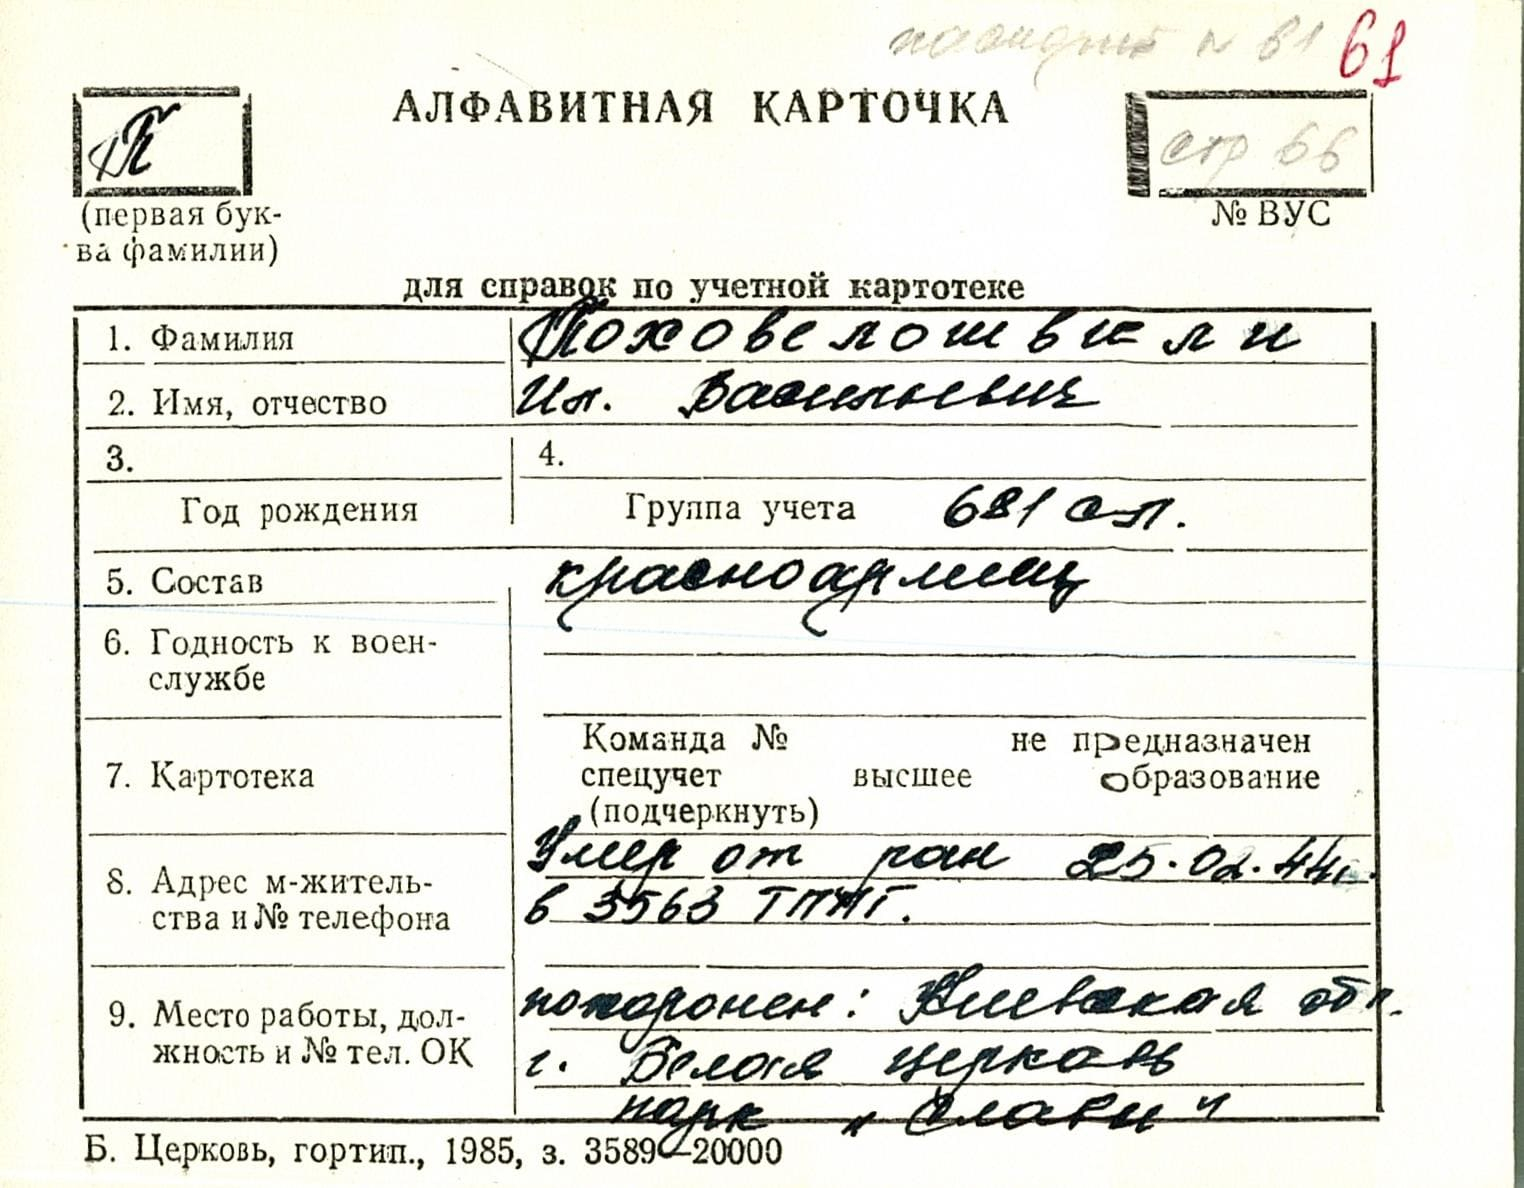 № 61 61
П
АЛФАВИТНАЯ КАРТОЧКА
стр 66
(первая бук-
ва фамилии)
№ ВУС
для справок по учетной картотеке
1. Фамилия Поховелошвили
2. Имя, отчество Ил. Васильевич
3. 4.
Год рождения Группа учета 681 сп.
5. Состав красноармеец
6. Годность к воен-
службе
Команда № не предназначен
7. Картотека спецучет высшее образование
(подчеркнуть)
Умер от ран 25.02.44г.
8. Адрес м-житель-
ства и № телефона в 3563 ТППГ.
похоронен: Киевская обл.
9. Место работы, дол-
жность и № тел. ОК г. Белая церковь
парк „Славы"
Б. Церковь, гортип., 1985, з. 3589—20000